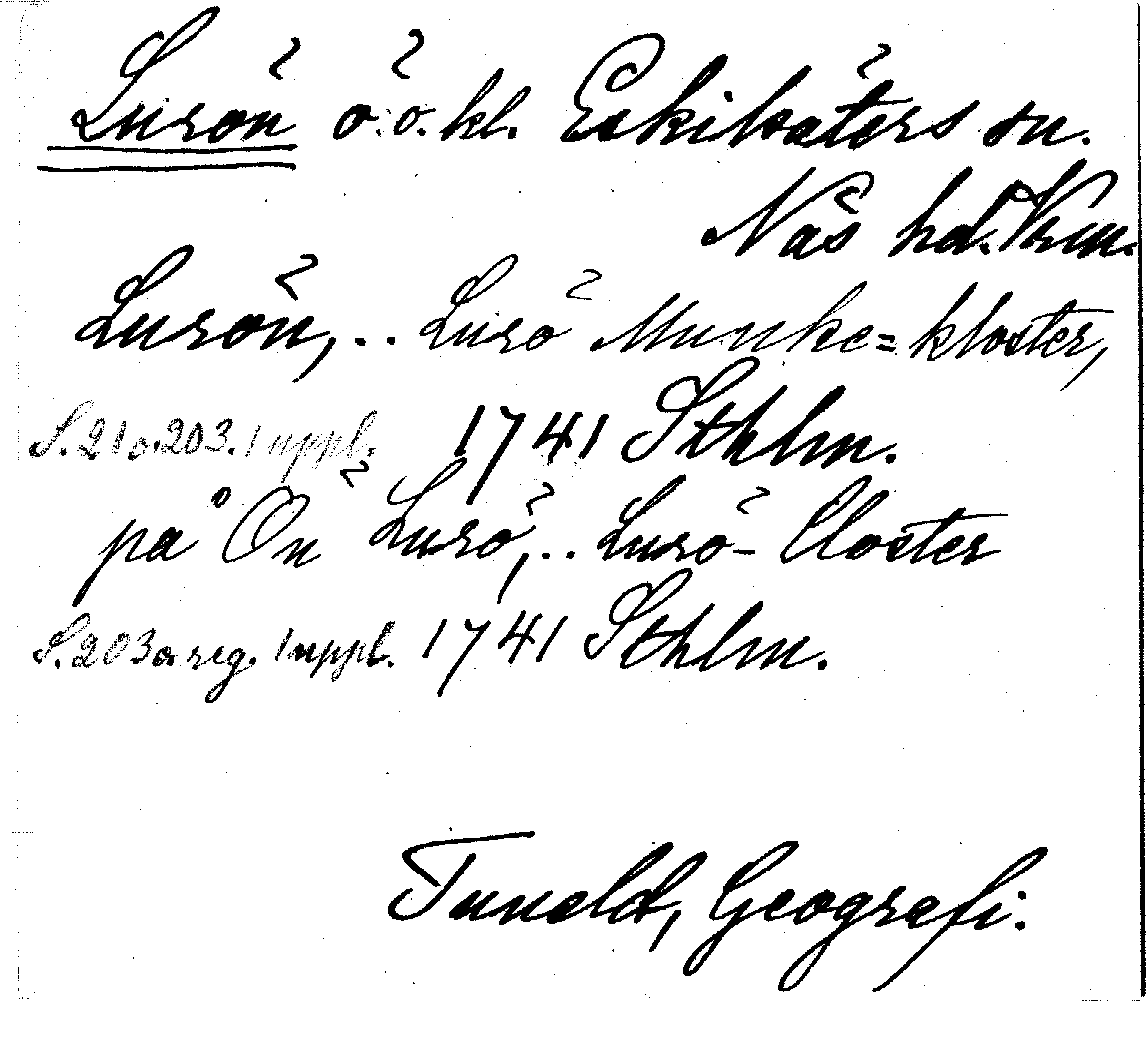 Lurön ö.o.kl. Eskilsäters sn.
Näs hd. Vrm.
Lurön,.. Lurö Munke=kloster,
S.21 o.203. 1 uppl. 1741 Sthlm.
på Ön Lurö,.. Lurö-Closter
S.203 o. reg. 1 uppl. 1741 Sthlm.
Tuneld, Geografi.